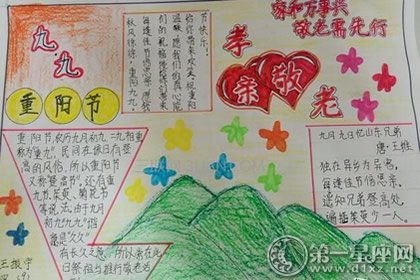 九九
重阳节
节快乐！
家和万事兴
敬老需先行
孝亲敬老
重阳节,农历九月初九,二九相重
称为重九。民间在该日有登
高的风俗，所以重阳节
又称"登高节"。还有重
九节、茱萸、菊花节
等说法。由于九月
初九"九九"谐音
是"久久"
有长久之意，所以常在此
日祭祖与推行敬老活
九月九日忆山东兄弟
唐:王维
独在异乡为异客，
每逢佳节倍思亲。
遥知兄弟登高处，
遍插茱萸少一人。
第一星座网
www.d1xz.net